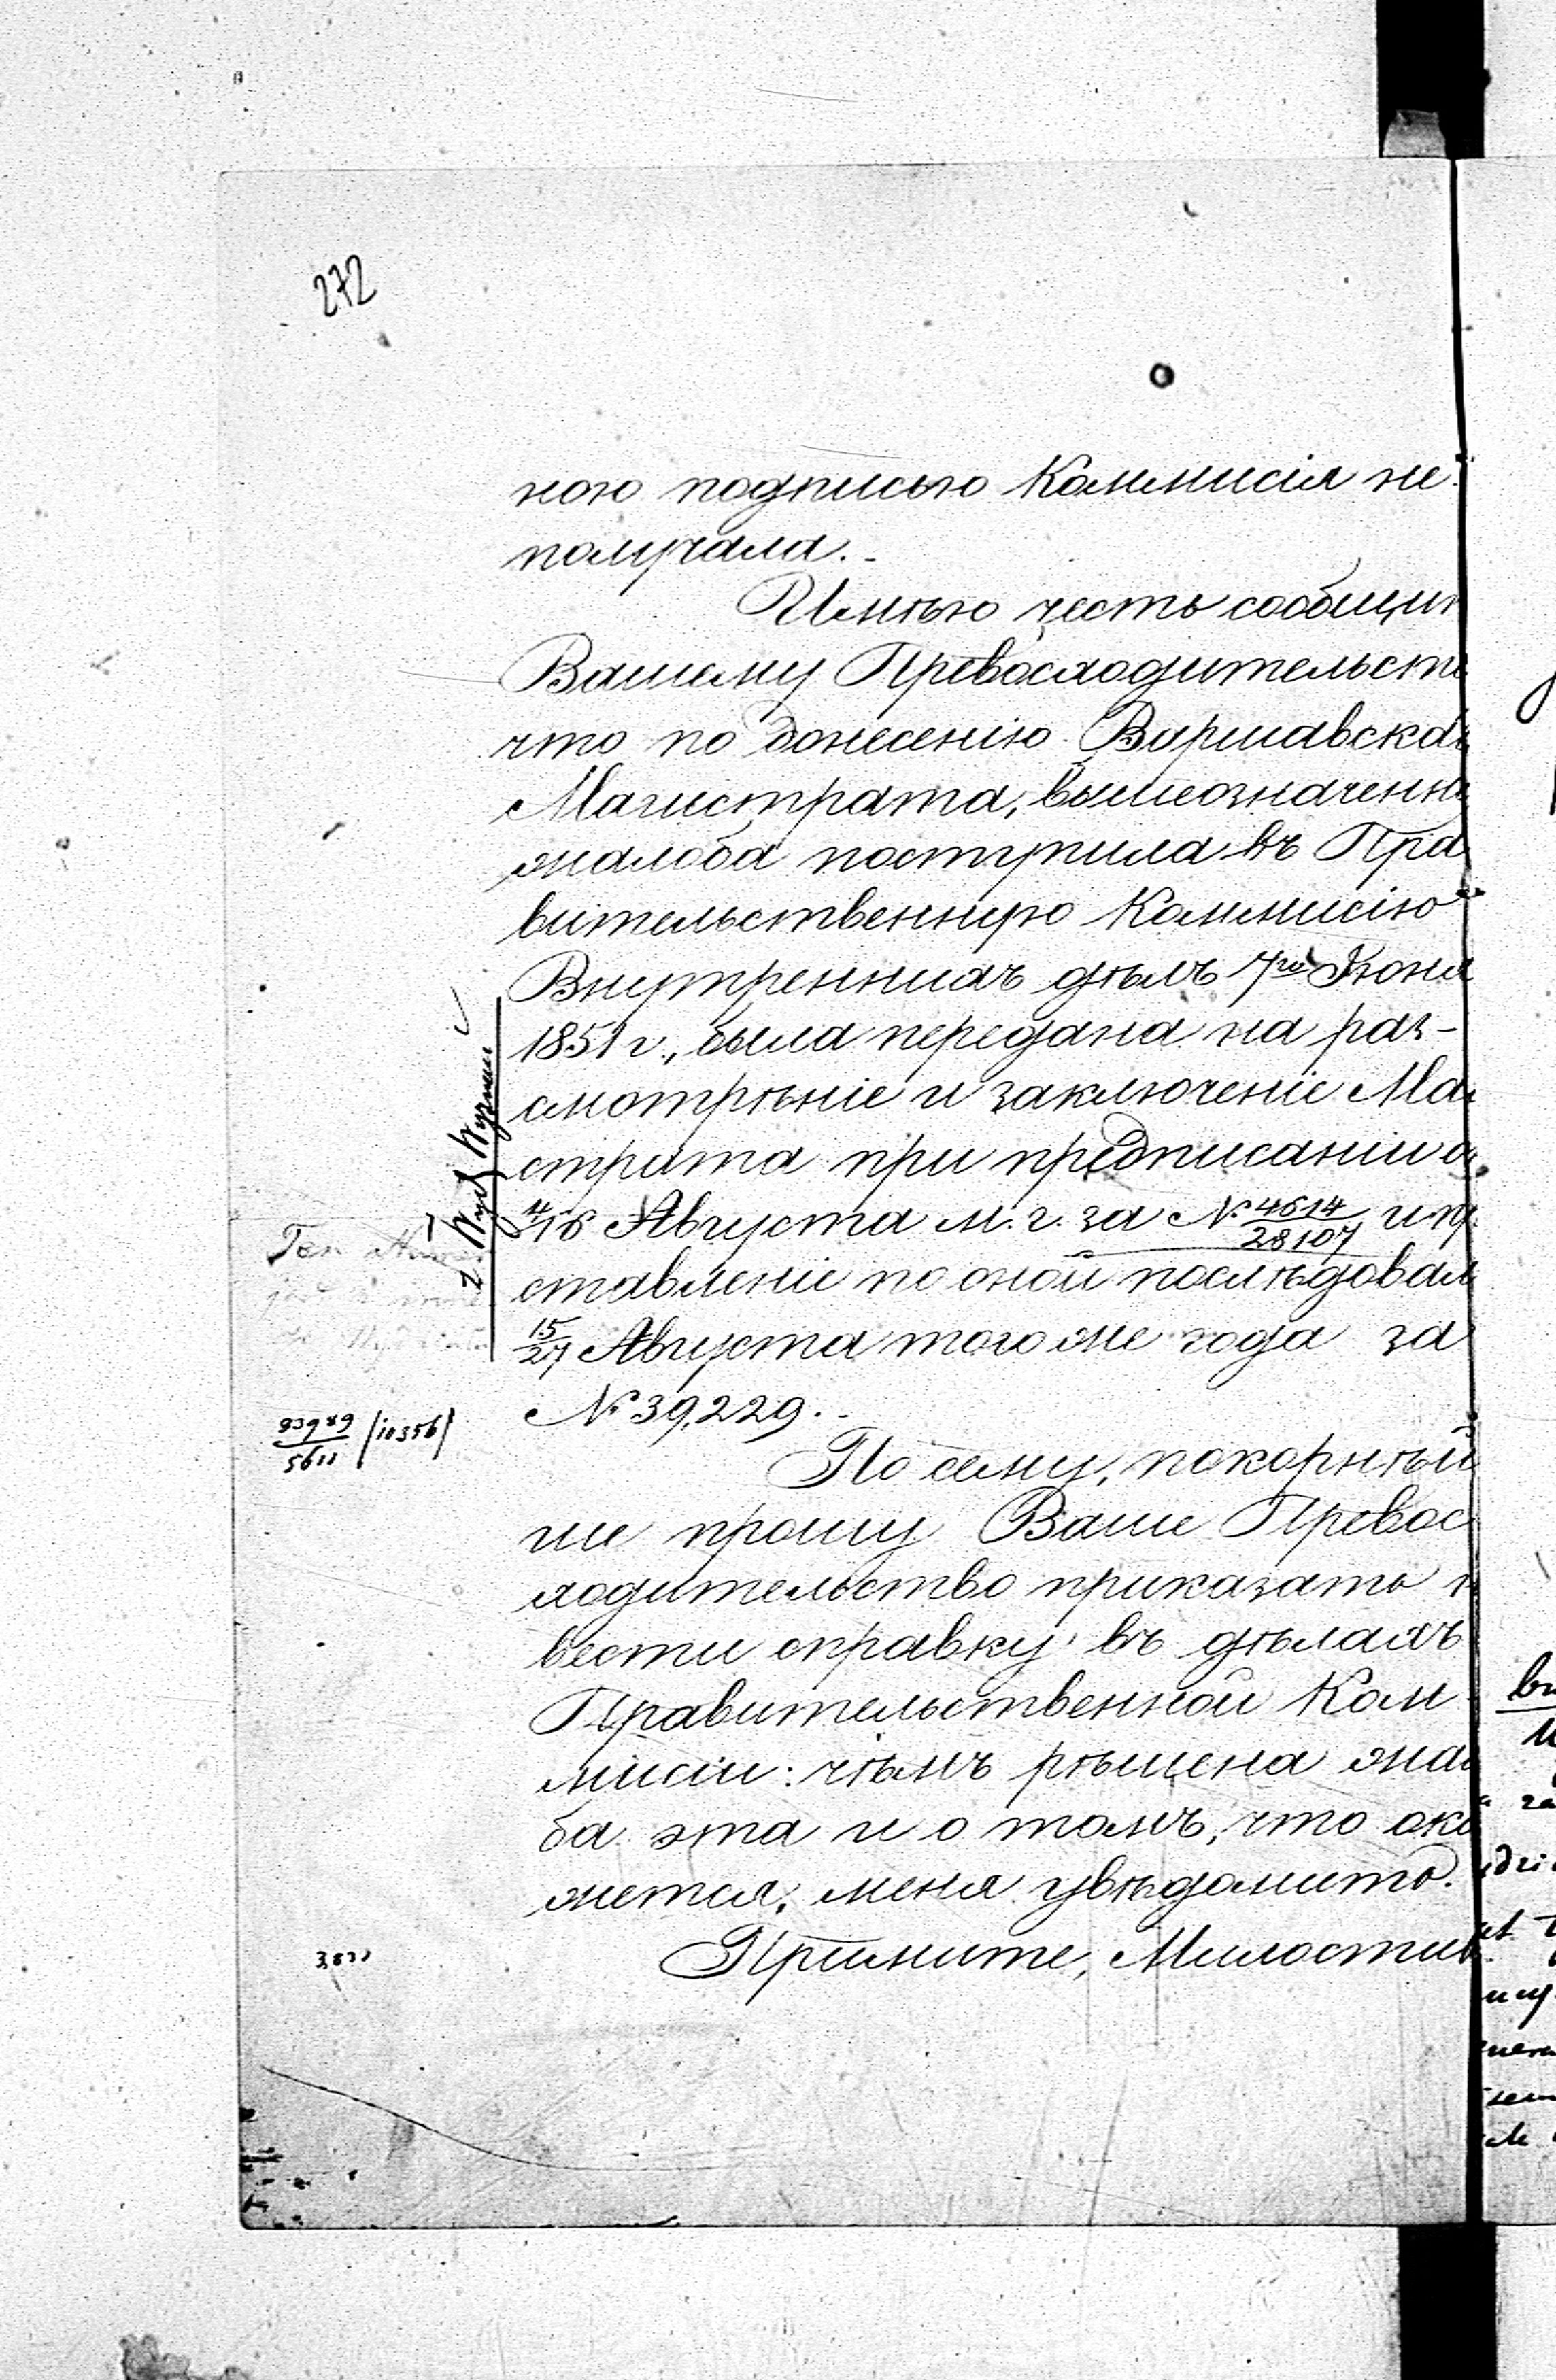 272
ною подписью Коммисія не
получала.
Имѣю честь сообщит
Вашему Превосходительств
что по донесенію Варшавска
Магистрата, вышеозначенна
жалоба поступила въ Пра
вительственную Коммисію
Внутреннихъ дѣлъ 7го Іюня
1851 г., была передана на раз-
смотрѣніе и заключеніе Маг
страта при предписаніи о
4/16 Августа м. г. за № 4614/28107 и пр
ставленіе по оной послѣдовал
15/27 Августа того же года за
№ 39,229.
93989/5611 /10356/
По сему, покорнѣй
ше прошу Ваше Превос
ходительство приказать
вести справку въ дѣлахъ
Правительственной Ком
мисіи: чѣмъ рѣшена жал
ба эта и о томъ, что ока
жется, меня увѣдомить.
Примите, Милостив